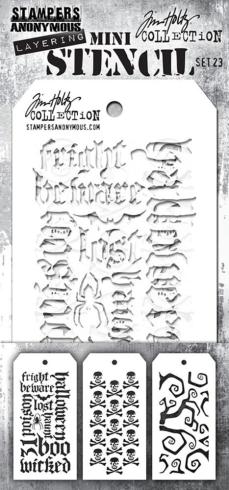 STAMPERS
ANONYMOUS
LAYERING
MINI
STENCIL
Tim Holtz
COLLECTION
SET 23
Tim Holtz
COLLECTION
STAMPERSANONYMOUS.COM
fright
beware
halloween
poison
lost
haunt
fright
beware
halloween
poison
lost
haunt
31
boo
wicked